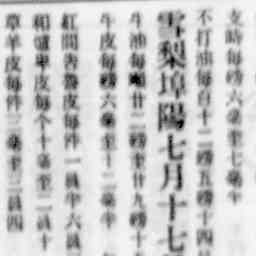 支時每磅六毫至七毫半
不打油每百十二磅五磅十四
雪梨埠陽七月十七
牛油每磅廿二磅至廿九磅十
牛皮每磅六毫至十二毫半
紅間袋鼠皮每件一員半六員
和囉卑皮每个十毫至二員十
草羊皮每件二毫至二員四